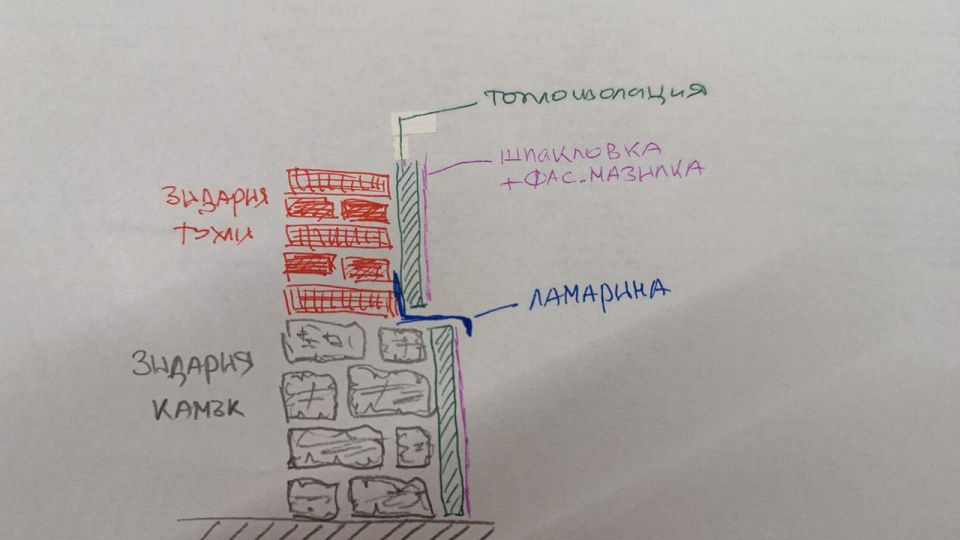 ТОПЛОИЗОЛАЦИЯ
ШПАКЛОВКА
+ФАС.МАЗИЛКА
ЗИДАРИЯ
ТУХЛИ
ЛАМАРИНА
ЗИДАРИЯ
КАМЪК